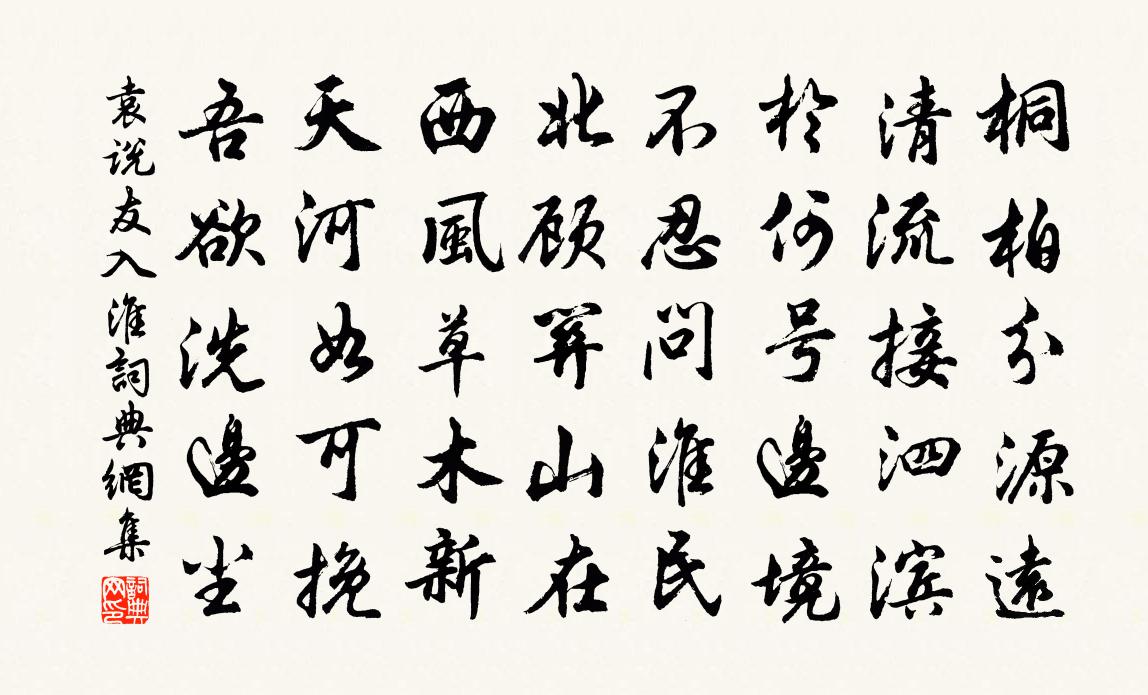 桐柏分源遠
清流接泗滨
於何号邊境
不忍問淮民
北顾関山在
西風草木新
天河如可挽
吾欲洗邊尘
袁说友入淮詞典網集
詞典网印